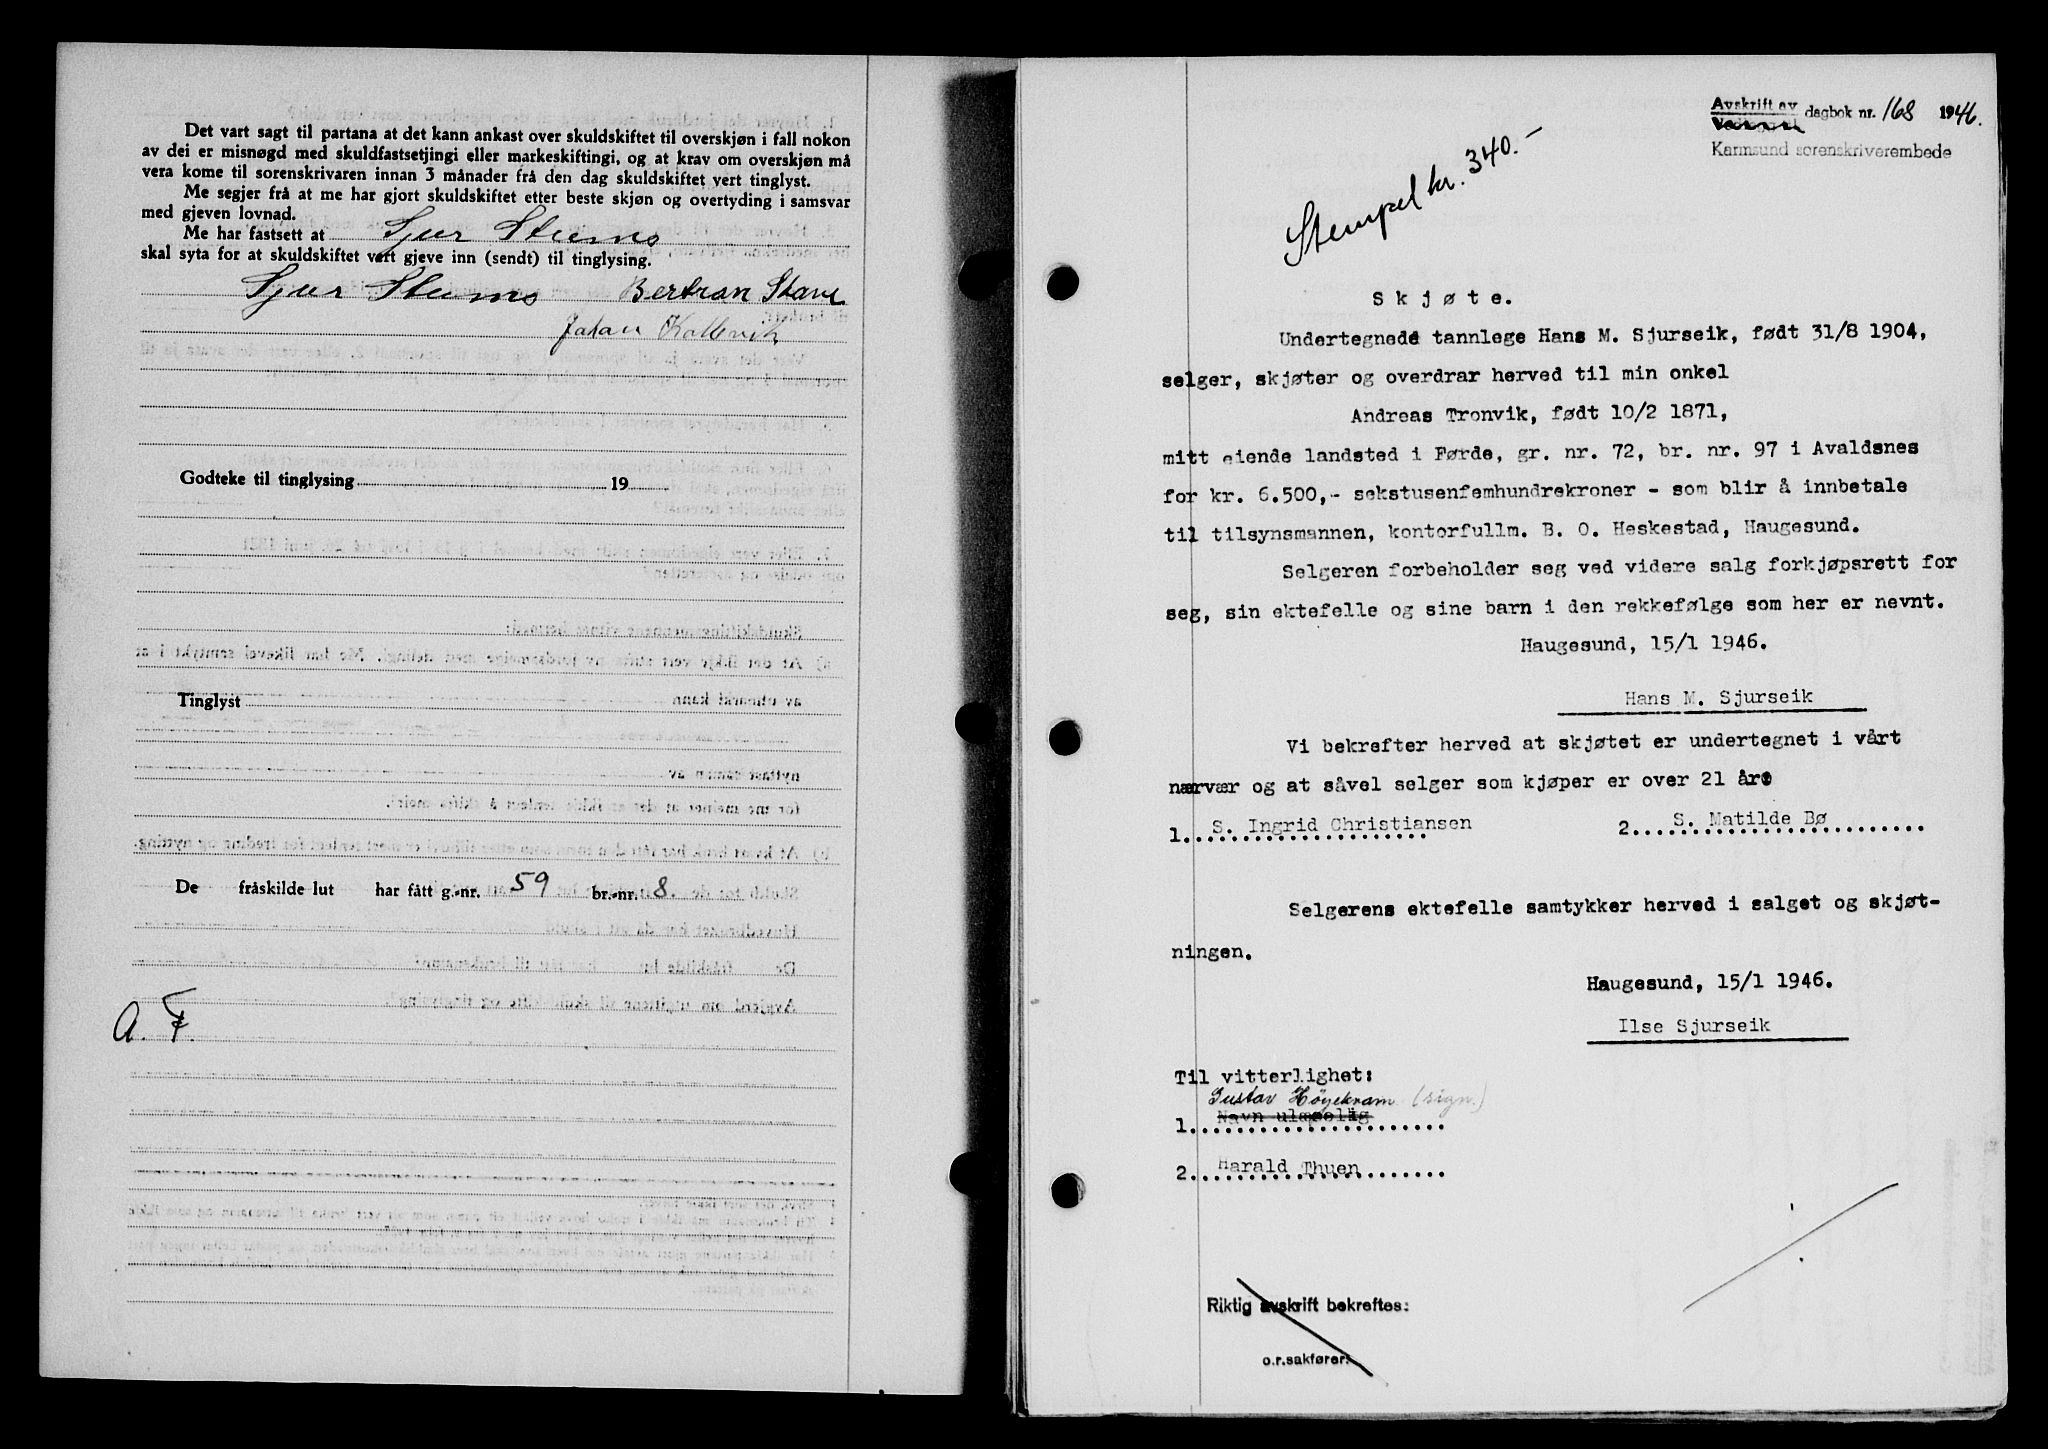 Det vart sagt til partana at det kann ankast over skuldskiftet til overskjøn i fall nokon
av dei er misnøgd med skuldfastsetjingi eller markeskiftingi, og at krav om overskjøn må
vera kome til sorenskrivaren innan 3 månader frå den dag skuldskiftet vert tinglyst.
Me segjer frå at me har gjort skuldskiftet etter beste skjøn og overtyding i samsvar
med gjeven lovnad.
Me har fastsett at Sjur
skal syta for at skuldskiftet vert gjeve inn (sendt) til tinglysing.
Sjur Bertran
Johan Kallevik
Godteke til tinglysing 19
Tinglyst
De fråskilde lut har fått g.-nr. 59 br.-nr. 8.
A. F.
Avskrift av dagbok nr. 168 1946.
Karmsund sorenskriverembede
Stempel kr. 340.-
Skjøte.
Undertegnede tannlege Hans M. Sjurseik, født 31/8 1904,
selger, skjøter og overdrar herved til min onkel
Andreas Tronvik, født 10/2 1871,
mitt eiende landsted i Førde, gr. nr. 72, br. nr. 97 i Avaldsnes
for kr. 6.500,- sekstusenfemhundrekroner - som blir å innbetale
til tilsynsmannen, kontorfullm. B. O. Heskestad, Haugesund.
Selgeren forbeholder seg ved videre salg forkjøpsrett for
seg, sin ektefelle og sine barn i den rekkefølge som her er nevnt.
Haugesund, 15/1 1946.
Hans M. Sjurseik
Vi bekrefter herved at skjøtet er undertegnet i vårt
nærvær og at såvel selger som kjøper er over 21 år.
1. S. Ingrid Christiansen 2. S. Matilde Bø
Selgerens ektefelle samtykker herved i salget og skjøt-
ningen.
Haugesund, 15/1 1946.
Ilse Sjurseik
Til vitterlighet:
Gustav Höyekram (sign.)
1. Navn ulæselig
2. Harald Thuen
Riktig avskrift bekreftes:
o.r.sakfører.